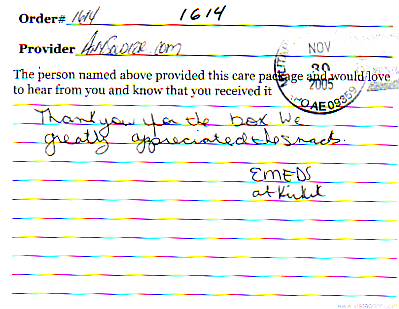 Order# 1614 1614
Provider .com
The person named above provided this care package and would love
to hear from you and know that you received it
NOV
30
2005
AE 09359
Thank you for the box We
greatly appreciated the snacks.
EMEDS
at Kirkuk